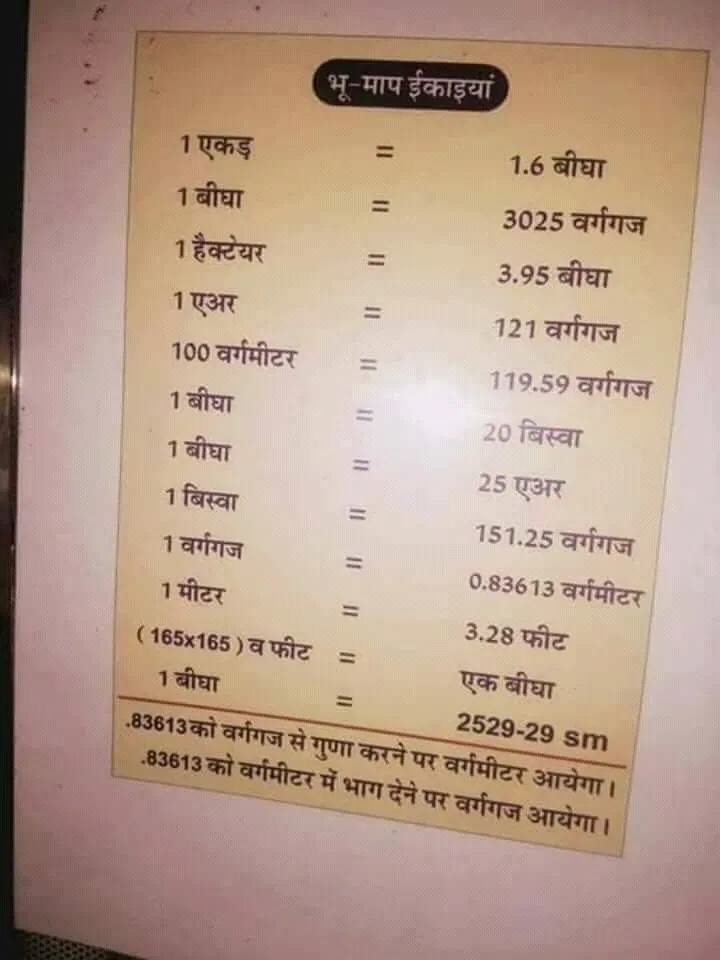 भू-माप ईकाइयां
1 एकड़ = 1.6 बीघा
1 बीघा = 3025 वर्गगज
1 हैक्टेयर = 3.95 बीघा
1 एअर = 121 वर्गगज
100 वर्गमीटर = 119.59 वर्गगज
1 बीघा = 20 बिस्वा
1 बीघा = 25 एअर
1 बिस्वा = 151.25 वर्गगज
1 वर्गगज = 0.83613 वर्गमीटर
1 मीटर = 3.28 फीट
( 165x165 ) व फीट = एक बीघा
1 बीघा = 2529-29 sm
.83613 को वर्गगज से गुणा करने पर वर्गमीटर आयेगा।
.83613 को वर्गमीटर में भाग देने पर वर्गगज आयेगा।